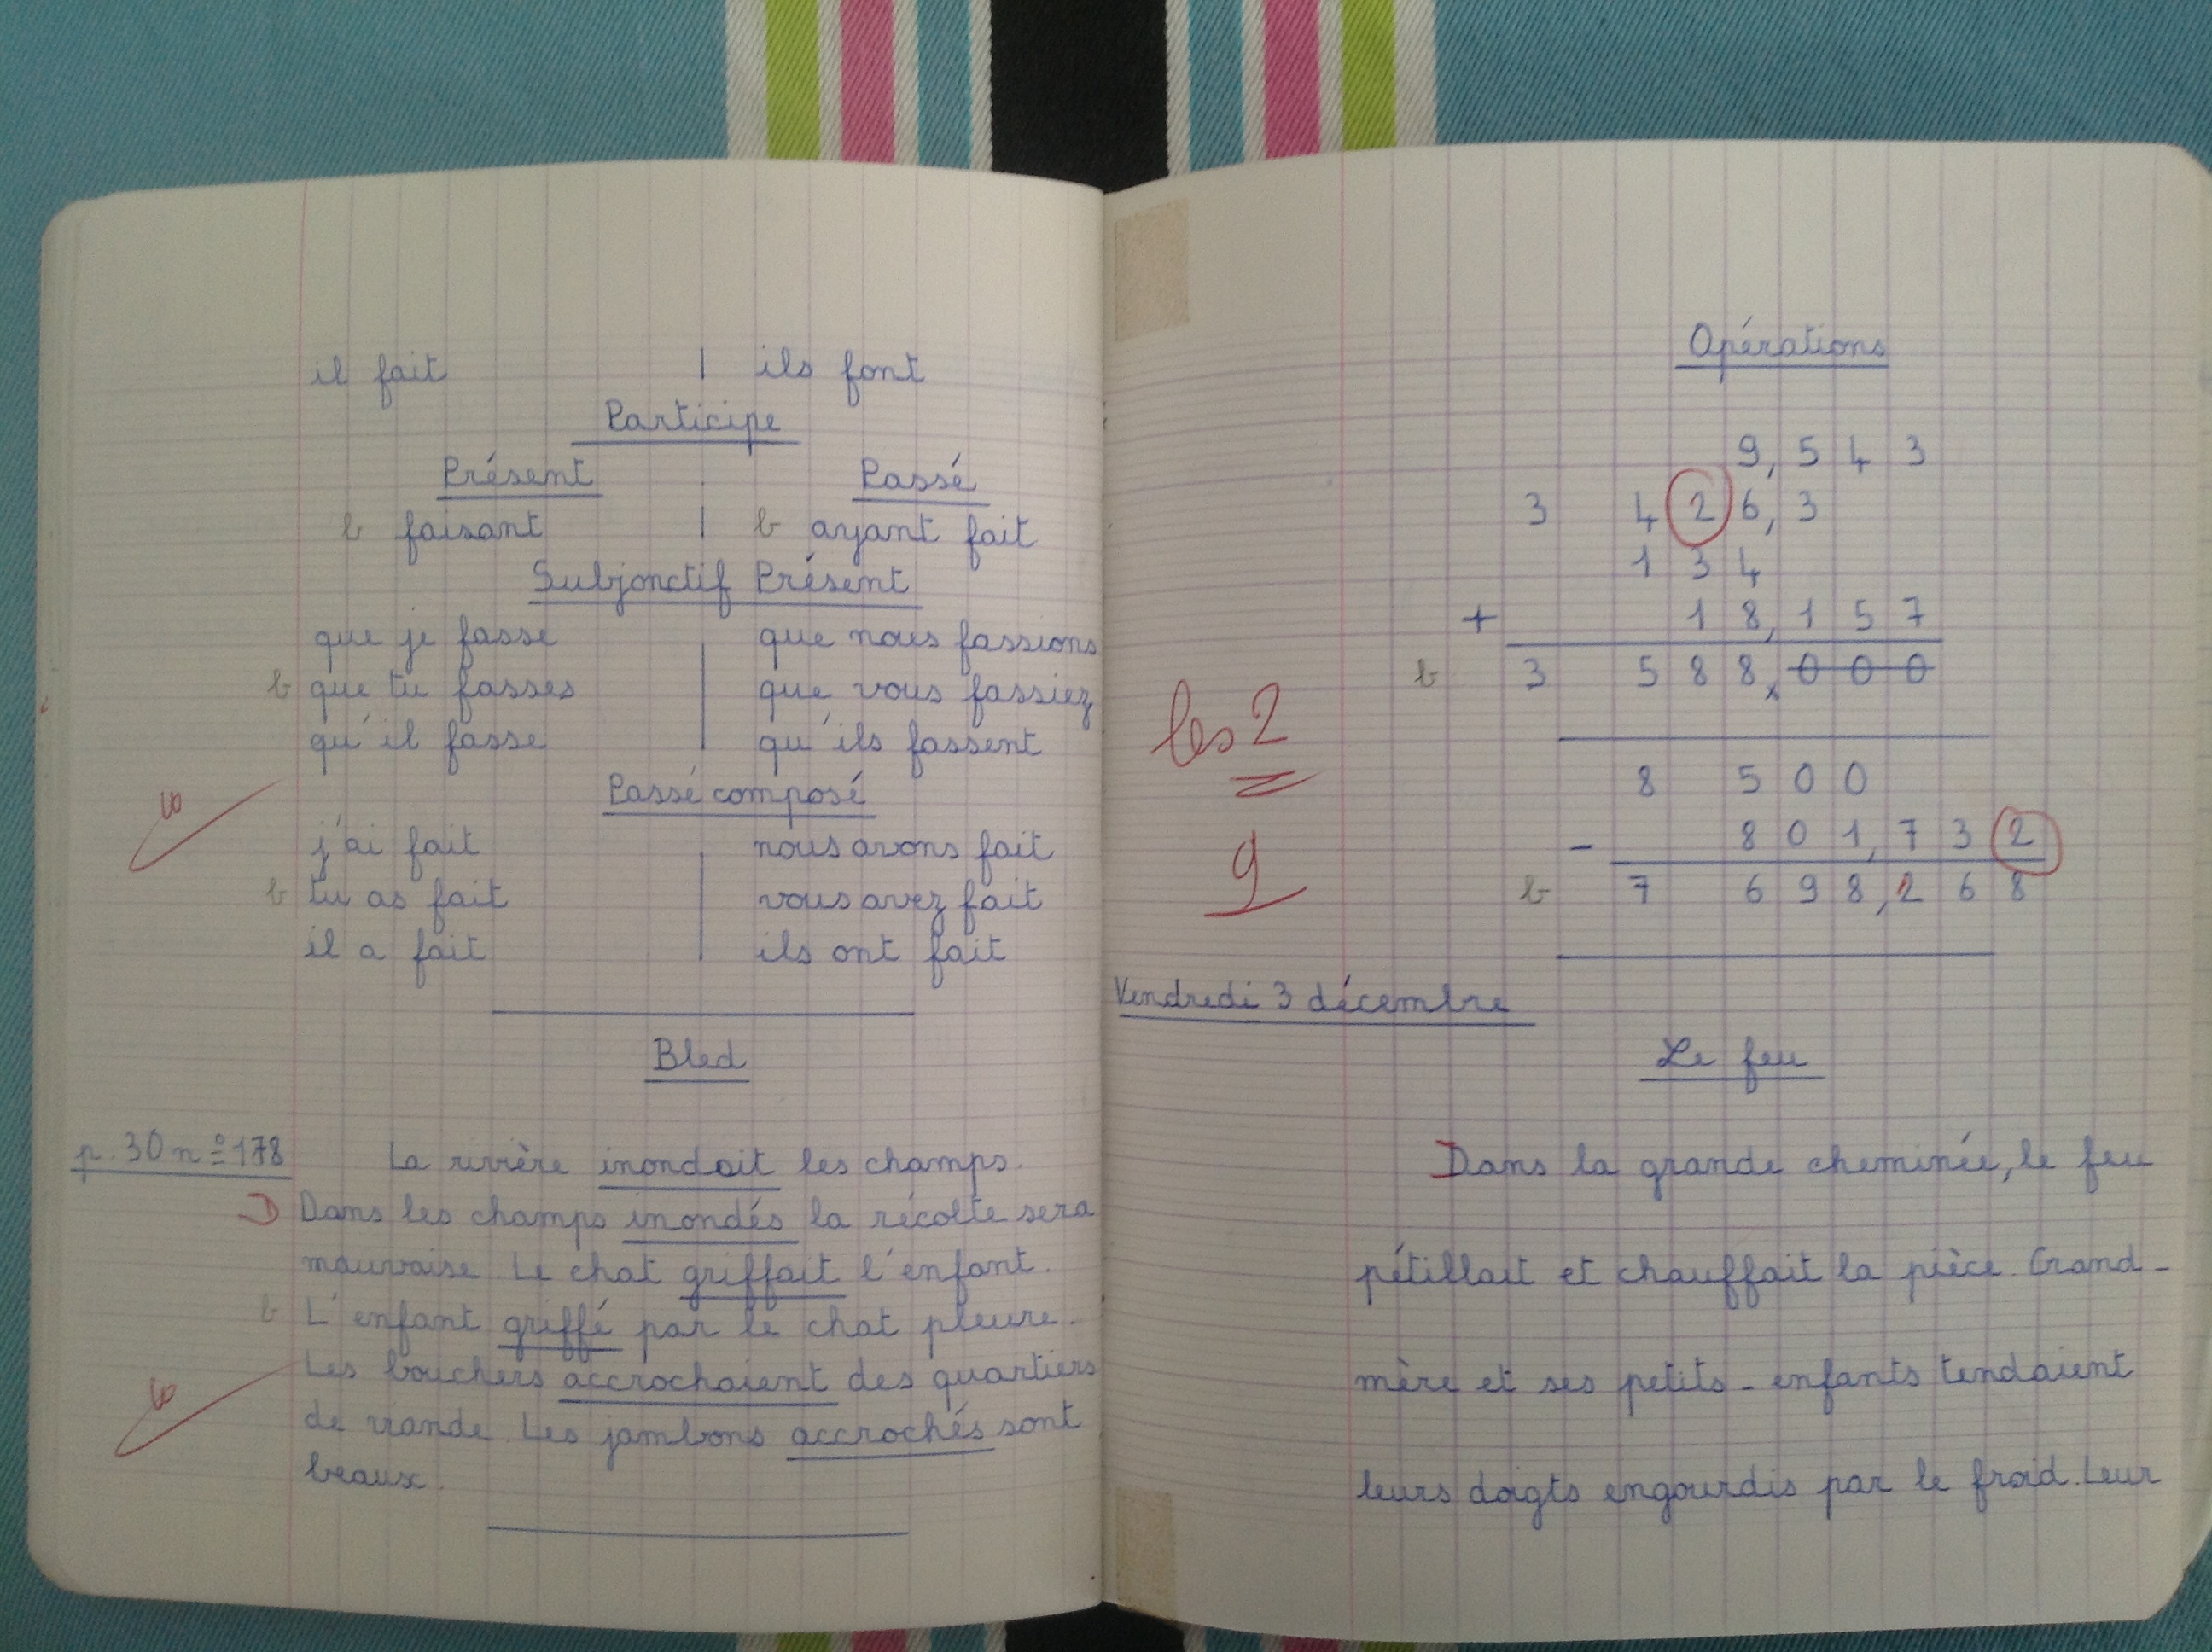 il fait | ils font
Participe
Présent Passé
b faisant | b ayant fait
Subjonctif Présent
que je fasse que nous fassions
b que tu fasses que vous fassiez
qu'il fasse qu'ils fassent
Passé composé
10
j'ai fait nous avons fait
b tu as fait vous avez fait
il a fait ils ont fait
Bled
p. 30 n° 178
La rivière inondait les champs.
Dans les champs inondés la récolte sera
mauvaise. Le chat griffait l'enfant.
b L'enfant griffé par le chat pleure.
Les bouchers accrochaient des quartiers
10
de viande. Les jambons accrochés sont
beaux.
Opérations
9,543
3 426,3
134
+ 18,157
b 3 588,000
les 2
8 500
- 801,732
b 7 698,268
9
Vendredi 3 décembre
Le feu
Dans la grande cheminée, le feu
pétillait et chauffait la pièce. Grand-
mère et ses petits-enfants tendaient
leurs doigts engourdis par le froid. Leur